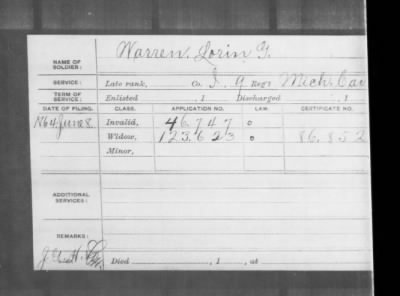 NAME OF SOLDIER: Warren, Lorin G.
SERVICE: Late rank, Co. I, 9 Reg't Mich. Cav
TERM OF SERVICE: Enlisted , 1 Discharged , 1
DATE OF FILING. CLASS. APPLICATION NO. LAW. CERTIFICATE NO.
1864 June 8. Invalid, 46.747 o
Widow, 123.623 o 86.852
Minor,
ADDITIONAL SERVICES:
REMARKS:
Died , 1 , at